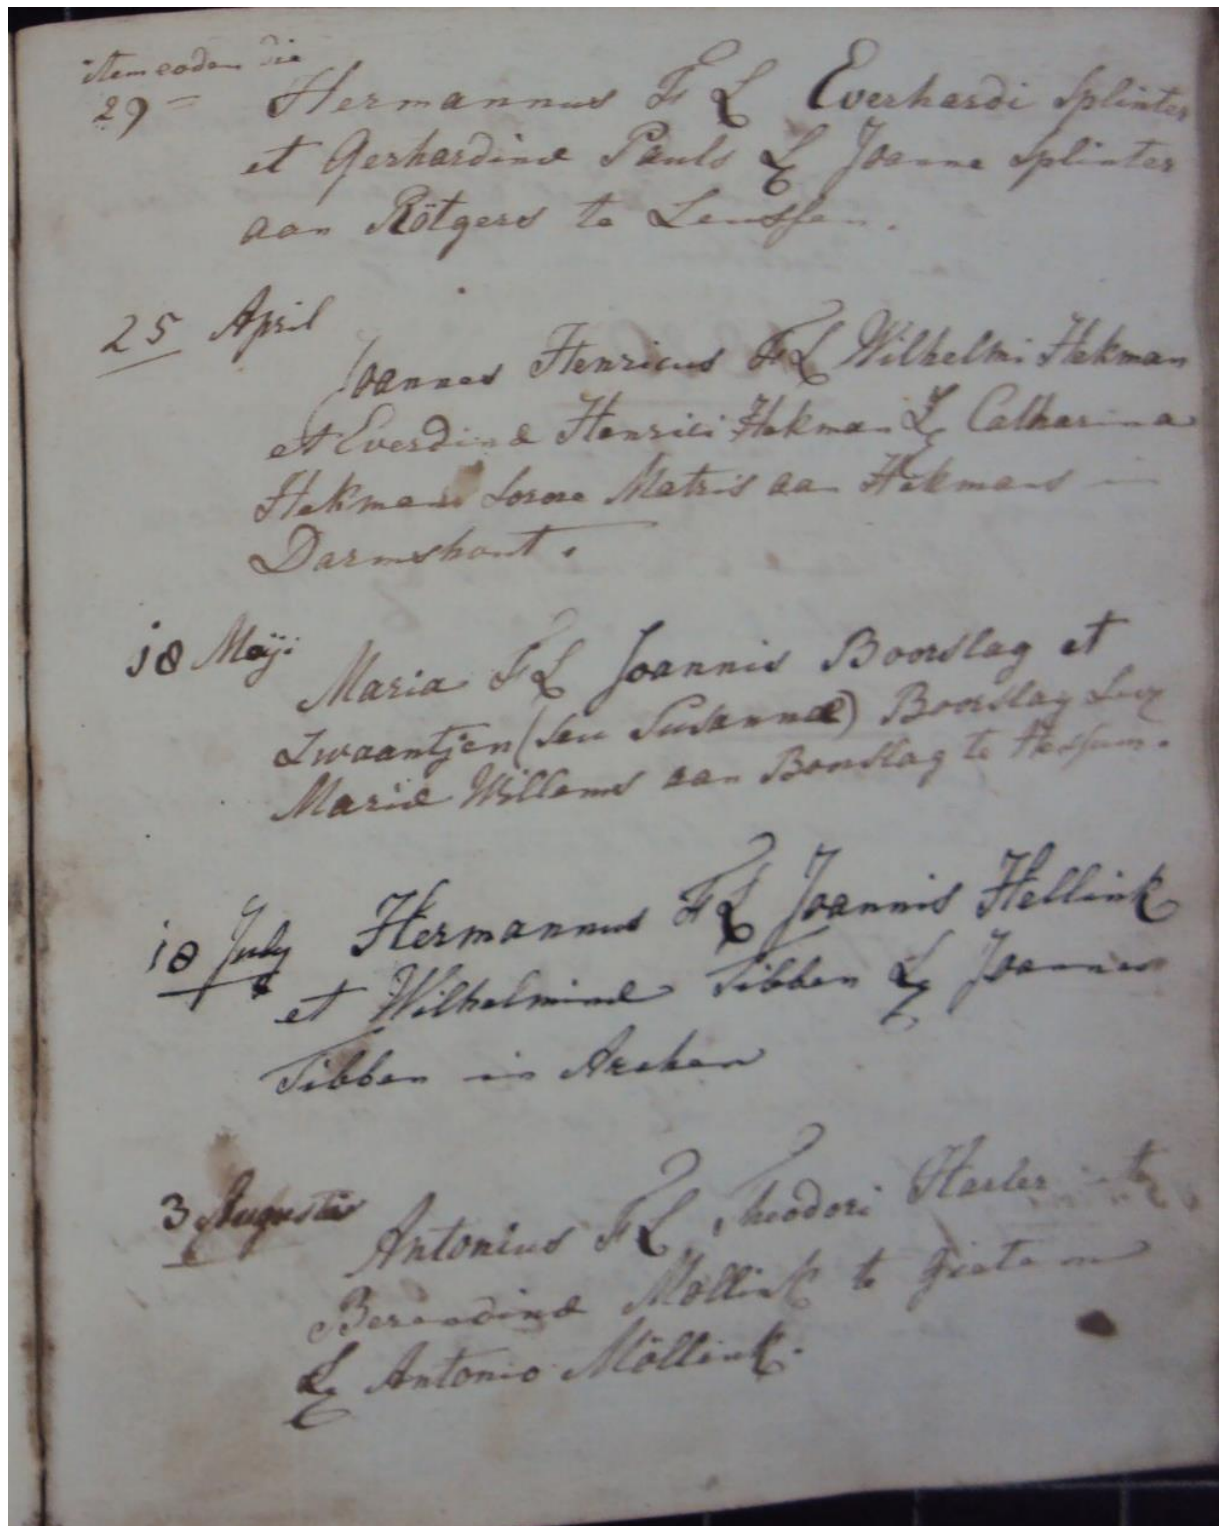 item eodem die
29 Hermannus F L Everhardi Splinter
et Gerhardinæ Pauls L Joanne Splinter
aan Rötgers te Leussen.
25 April
Joannes Henricus F L Wilhelmi Hekman
et Everdinæ Henrici Hekman L Catharina
Hekmans Sorore Matris aan Hekmans in
Darmshout.
18 Meij:
Maria F L Joannis Boorslag et
Zwaantjen (seu Susannæ) Boorslag Lev
Mariæ Willems aan Boorslag te Hessum.
18 July Hermannus F L Joannis Hellink
et Wilhelminæ Tibben L Joannes
Tibben in Archen
3 Augustus
Antonius F L Theodori
Berendinæ Möllink te Gietem
L Antonio Möllink.